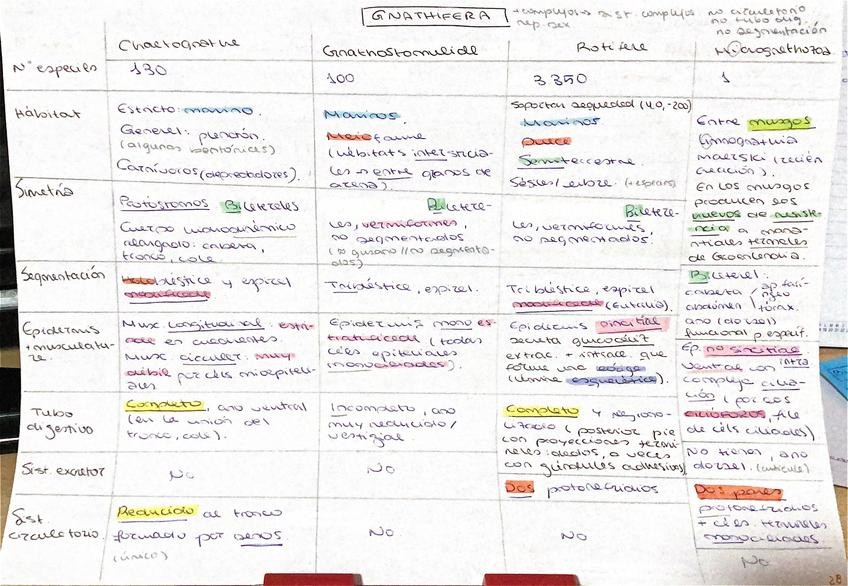 GNATHIFERA
+ complejos → sist. complejos
rep. sex
no circulatorio
no tubo dig.
no segmentación
Chaetognatha
Gnathostomulida
Rotifera
Micrognathozoa
Nº especies
130
100
3350
1
Hábitat
Estricto: marino.
General: plancton.
(algunas bentónicas)
Carnívoros (depredadores).
Marinos.
Meiofauna
(hábitats intersticia-
les → entre granos de
arena).
Soportan sequedad (40, -200)
Marinos
Dulce
Semiterrestre
Sésiles/libre.
Entre musgos
Limnognathia
maerski (recién
En los musgos
producen los
huevos de resiste-
ncia a mana-
ntiales termales
de Groenlandia.
Simetría
Protóstomos Bilaterales
Cuerpo
alargado: cabeza,
tronco, cola.
Bilatera-
les, vermiformes,
no segmentados
(≈ gusano // no segmenta-
dos)
Bilatera-
les, vermiformes,
no segmentados.
Bilateral:
cabeza /
abdomen / tórax.
ano (dorsal)
funcional p. esporit.
Segmentación
Holoblástica y espiral
modificada
Triblástica, espiral.
Triblástica, espiral
modificada (eutelia).
Epidermis
+ musculatu-
ra.
Musc. longitudinal: estri-
ada en cuadrantes
Musc. circular: muy
débil por céls mioepiteli-
ales
Epidermis mono es-
tratificada (todas
céls epiteliales
monociliadas).
Epidermis sincitial
secreta glucocálix
extrac. + intrac. que
forma una loriga
(lámina esquelética).
Ep. no sincitial
ventral con
compleja cilia-
ción (por los
cilióforos, fila
de céls ciliadas)
Tubo
digestivo
Completo, ano ventral
(en la unión del
tronco, cola).
Incompleto, ano
muy reducido/
vestigial.
Completo y regiona-
lizado (posterior pie
con proyecciones termi-
nales: dedos, a veces
con glándulas adhesivas)
No tienen, ano
dorsal. (cutícula)
Sist. excretor
No
No
Dos protonefridios
Dos pares
protonefridios
+ céls. terminales
monociliadas
Sist.
circulatorio.
Reducido al tronco
formado por senos
(único)
No
No
No
28